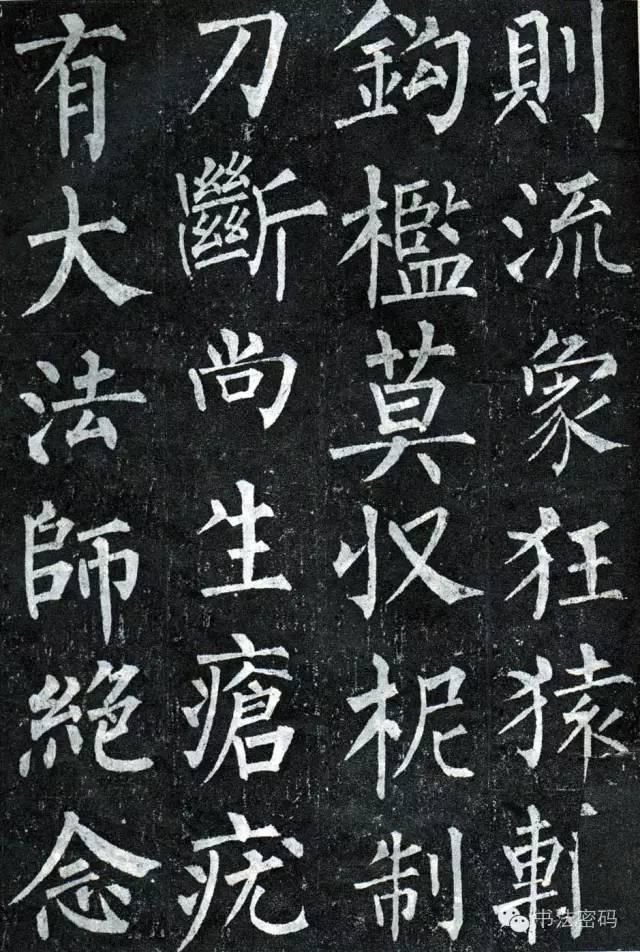 則流象狂猿輕
鈎檻莫収柅制
刀斷尚生瘡疣
有大法師絶念
书法密码